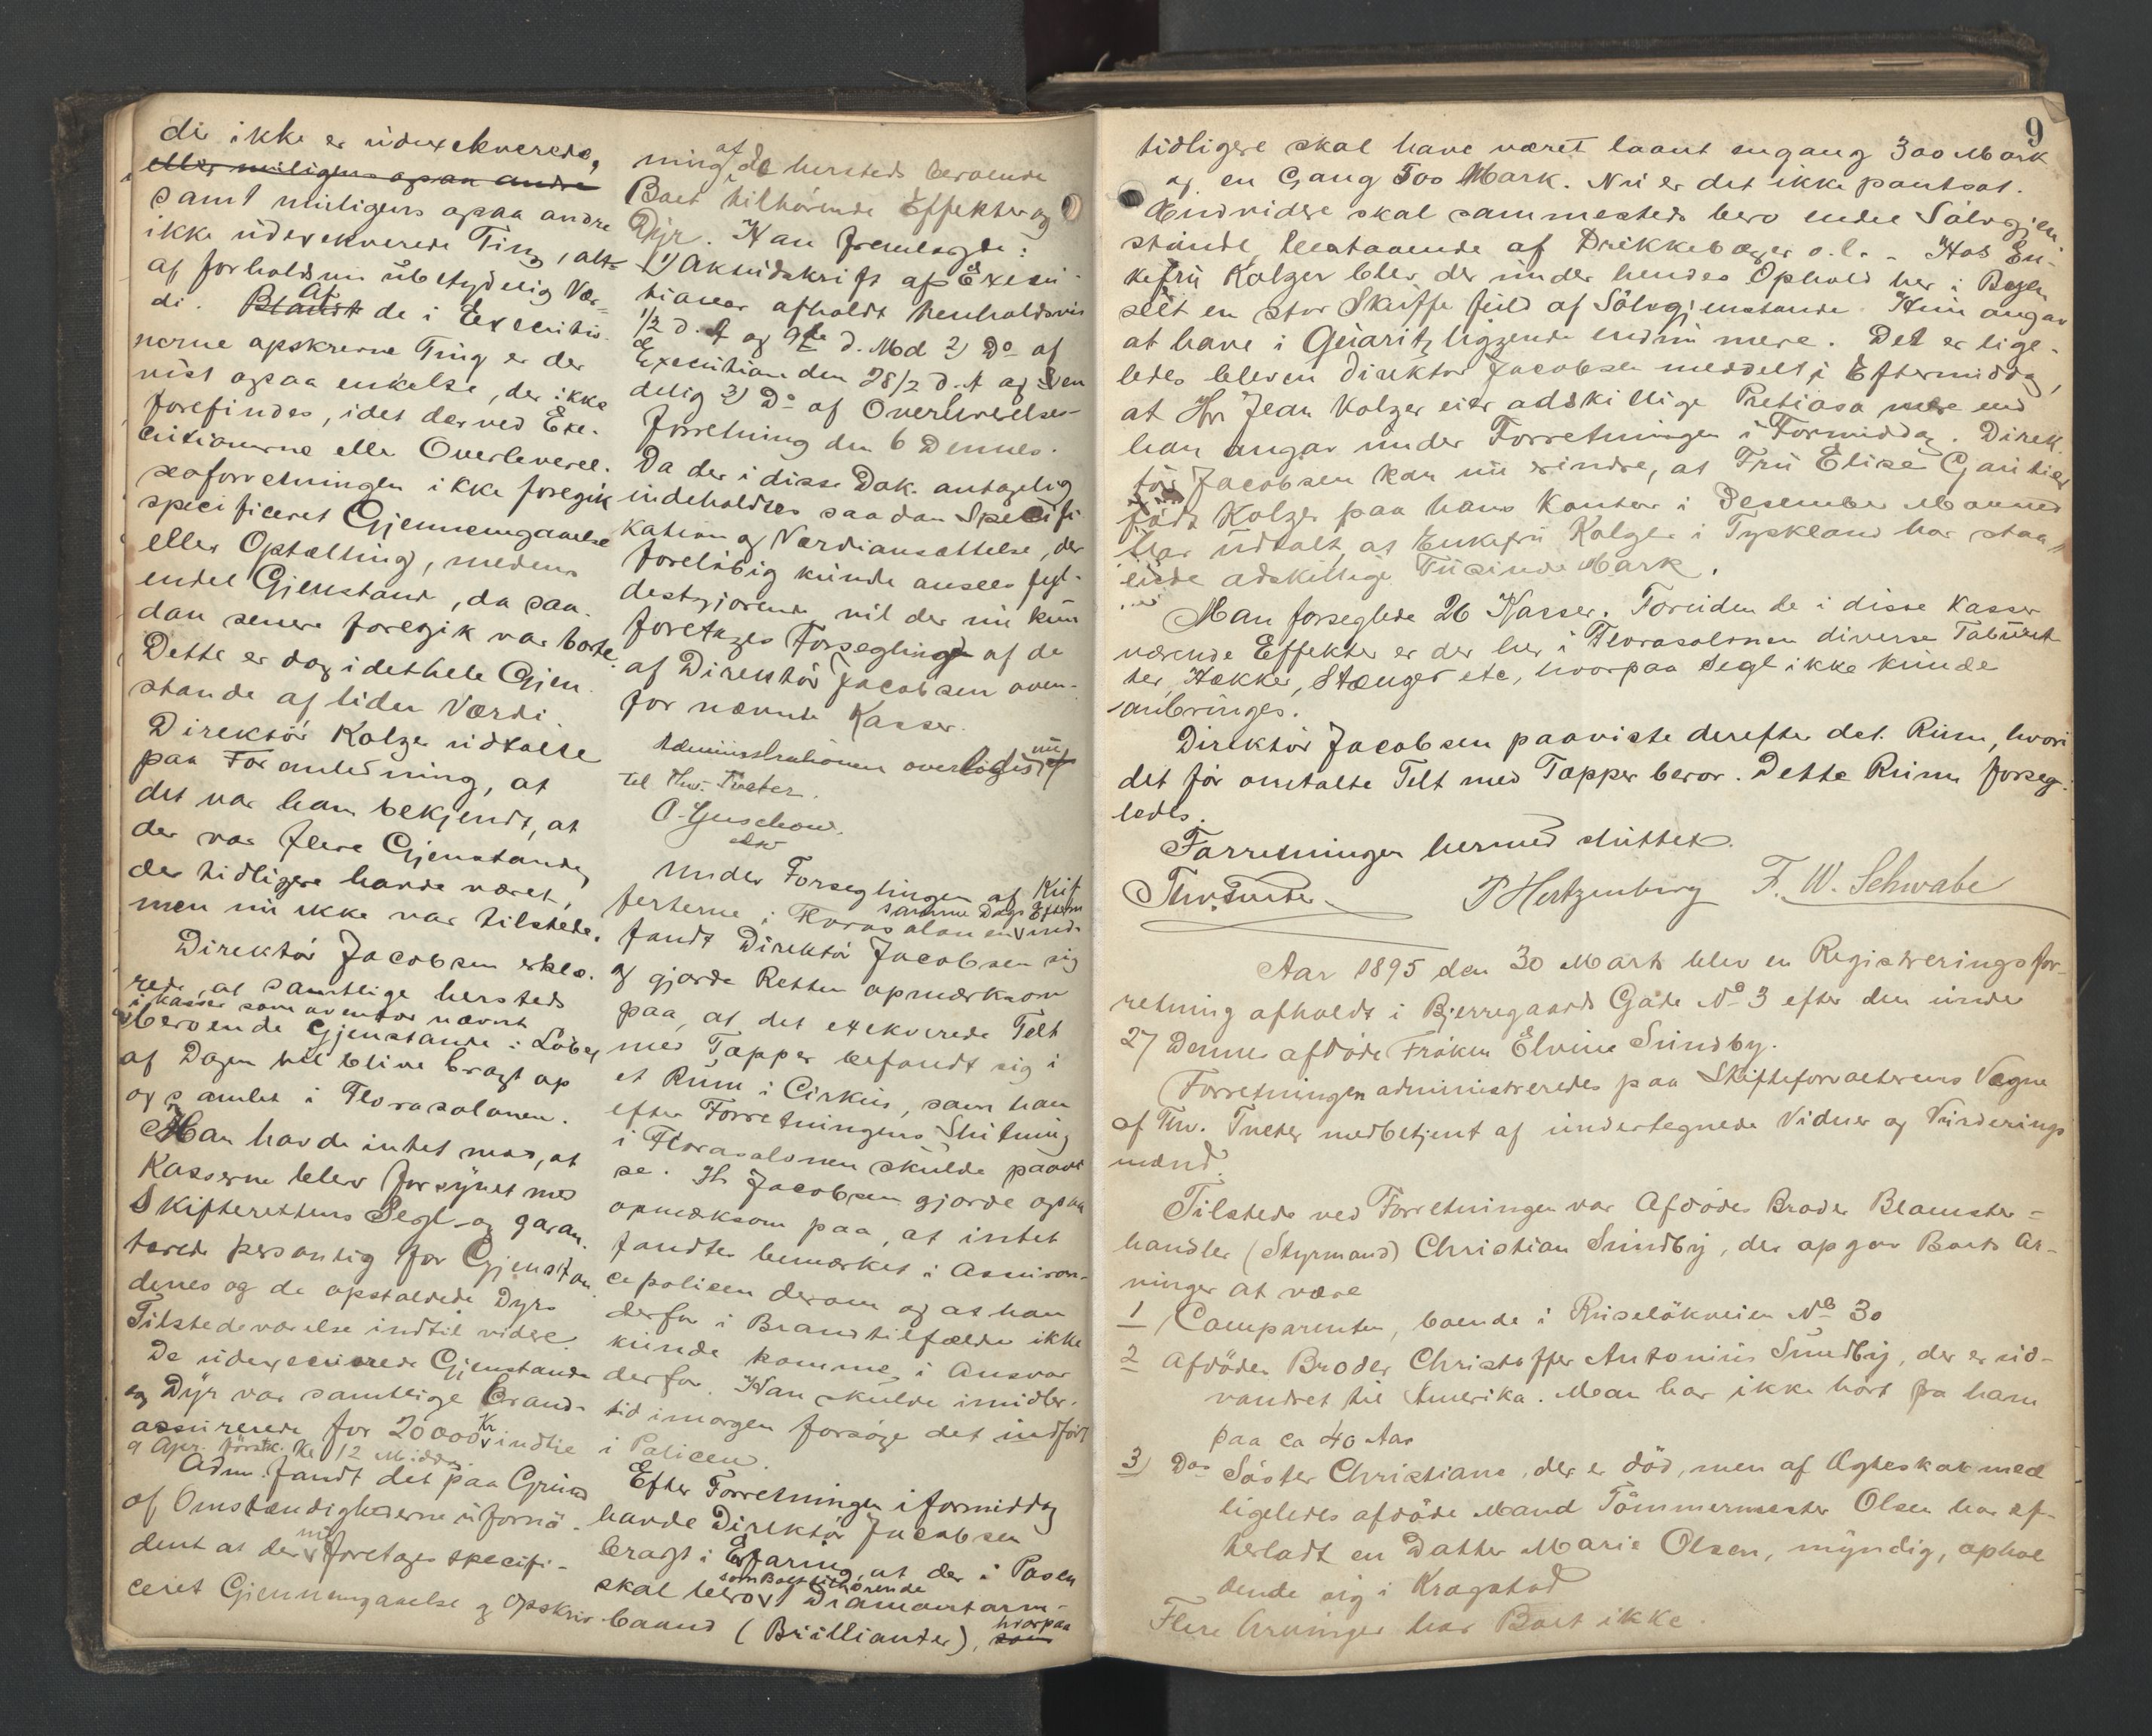 de ikke er udexekverede,
eller muligens ogsaa andre
samt muligens ogsaa andre
ikke udexekverede Ting, alt
af forholdsvis ubetydelig Vær-
di. Blandt Af de i Executio-
nerne opskrevne Ting er der
vist ogsaa enkelte, der ikke
forefindes, idet der ved Exe-
cutionerne eller Overleverel-
sesforretningen ikke foregik
specificeret Gjennemgaaelse
eller Optælling, medens
endel Gjenstande, da saa-
dan senere foregik var borte.
Dette er dog i det hele Gjen-
stande af liden Værdi.
Direktör Kolzer udtalte
paa Foranledning, at
det var ham bekjendt, at
der var flere Gjenstande,
der tidligere havde været,
men nu ikke var tilstede.
Direktör Jacobsen erklæ-
rede, at samtlige hersteds
i Kasser som ovenfor nævnt
beroende Gjenstande i Löbet
af Dagen vil blive bragt op
og samlet i Florasalonen.
Han havde intet mod, at
Kasserne blev forsynet med
Skifterettens Segl og garan-
terede personlig for Gjenstan-
denes og de opstaldede Dyrs
Tilstedeværelse indtil videre.
De udexecverede Gjenstande
og Dyr var samtlige brand-
assurerede for 20000 Kr indtil
9 Apr. förstk. Kl 12 Middag.
Adm. fandt det paa Grund
af Omstændighederne ufornö-
dent at der nu foretages specifi-
ceret Gjennemgaaelse og Opskriv-
ning af de hersteds beroende
Boet tilhörende Effekter og
Dyr. Han fremlagde:
1) Aktudskrift af Execu-
tioner afholdt henholdsvis
1/2 d. A og 9de d. Md 2) Do af
Execution den 28/2 d. A og en-
delig 3) Do af Overleverelses-
forretning den 6 Dennes.
Da der i disse Dok. antagelig
indeholdtes saadan Specifi-
kation og Værdiansættelse, der
forelöbig kunde ansees fyl-
destgjørende vil der nu kun
foretages Forsegling af de
af Direktör Jacobsen oven-
for nævnte Kasser.
Administrationen overlodes nu
til Thv. Tveter.
O. Guschow.
Under Forseglingen af Kuf-
ferterne i Florasalonen samme Dags Efterm ind-
fandt Direktör Jacobsen sig
og gjorde Retten opmærksom
paa, at det exekverede Telt
med Tæpper befandt sig i
et Rum i Cirkus, som han
efter Forretningens Slutning
i Florasalonen skulde paavi
se. Hr Jacobsen gjorde ogsaa
opmærksom paa, at intet
fandtes bemærket i Assuran-
cepolicen derom og at han
derfor i Brandtilfælde ikke
kunde komme i Ansvar
derfor. Han skulde imidler-
tid imorgen forsöge det indfört
i Policen.
Efter Forretningen i formiddag
havde Direktör Jacobsen
bragt i Erfaring, at der i Posen
skal bero som Boet tilhörende Diamantarm-
baand (Brillianter), som hvorpaa
9
tidligere skal have været laant engang 300 Mark
og en Gang 500 Mark. Nu er det ikke pantsat.
Endvidere skal sammesteds bero endel Sölvgjen-
stande, bestaaende af Drikkebæger o.l. - Hos En-
kefru Kolzer blev der under hendes Ophold her i Byen
seet en stor Skuffe fuld af Sölvgjenstande. Hun angav
at have i Quaritz liggende endnu mere. Det er lige-
ledes bleven Direktör Jacobsen meddelt i Eftermiddag,
at Hr Jean Kolzer eier adskillige Pretiosa mere end
han angav under Forretningen i Formiddag. Direk-
tör Jacobsen kan nu erindre, at Fru Elise Gautier
född Kolzer paa hans Kontor i Desember Maaned
har udtalt, at Enkefru Kolzer i Tyskland har staa-
ende adskillige Tusinde Mark.
Man forseglede 26 Kasser. Foruden de i disse Kasser
værende Effekter er der her i Florasalonen diverse Tabouret
ter, Hækker, Stænger etc, hvorpaa Segl ikke kunde
anbringes.
Direktör Jacobsen paaviste derefter det Rum, hvori
det för omtalte Telt med Tæpper beror. Dette Rum forseg-
ledes.
Forretningen hermed sluttet.
Thv. Tveter P Hertzenberg F. W. Schwabe
Aar 1895 den 30 Marts blev en Registreringsfor-
retning afholdt i Bjerregaards Gade No 3 efter den under
27 Dennes afdöde Fröken Elvine Sundby.
Forretningen administreredes paa Skifteforvalterens Vegne
af Thv. Tveter medbetjent af undertegnede Vidner og Vurderings
mænd.
Tilstede ved Forretningen var Afdödes Broder Blomster-
handler (Styrmand) Christian Sundby, der opgav Boets Ar-
vinger at være
1, Comparenten, boende i Ruselökveien No 30
2 Afdödes Broder Christoffer Antonius Sundby, der er ud-
vandret til Amerika. Man har ikke hört fra ham
paa ca 40 Aar
3) Dos Söster Christiane, der er död, men af Ægteskab med
ligeledes afdöde Mand Tömmermester Olsen har ef-
terladt en Datter Marie Olsen, myndig, ophol
dende sig i Kragstad
Flere Arvinger har Boet ikke.